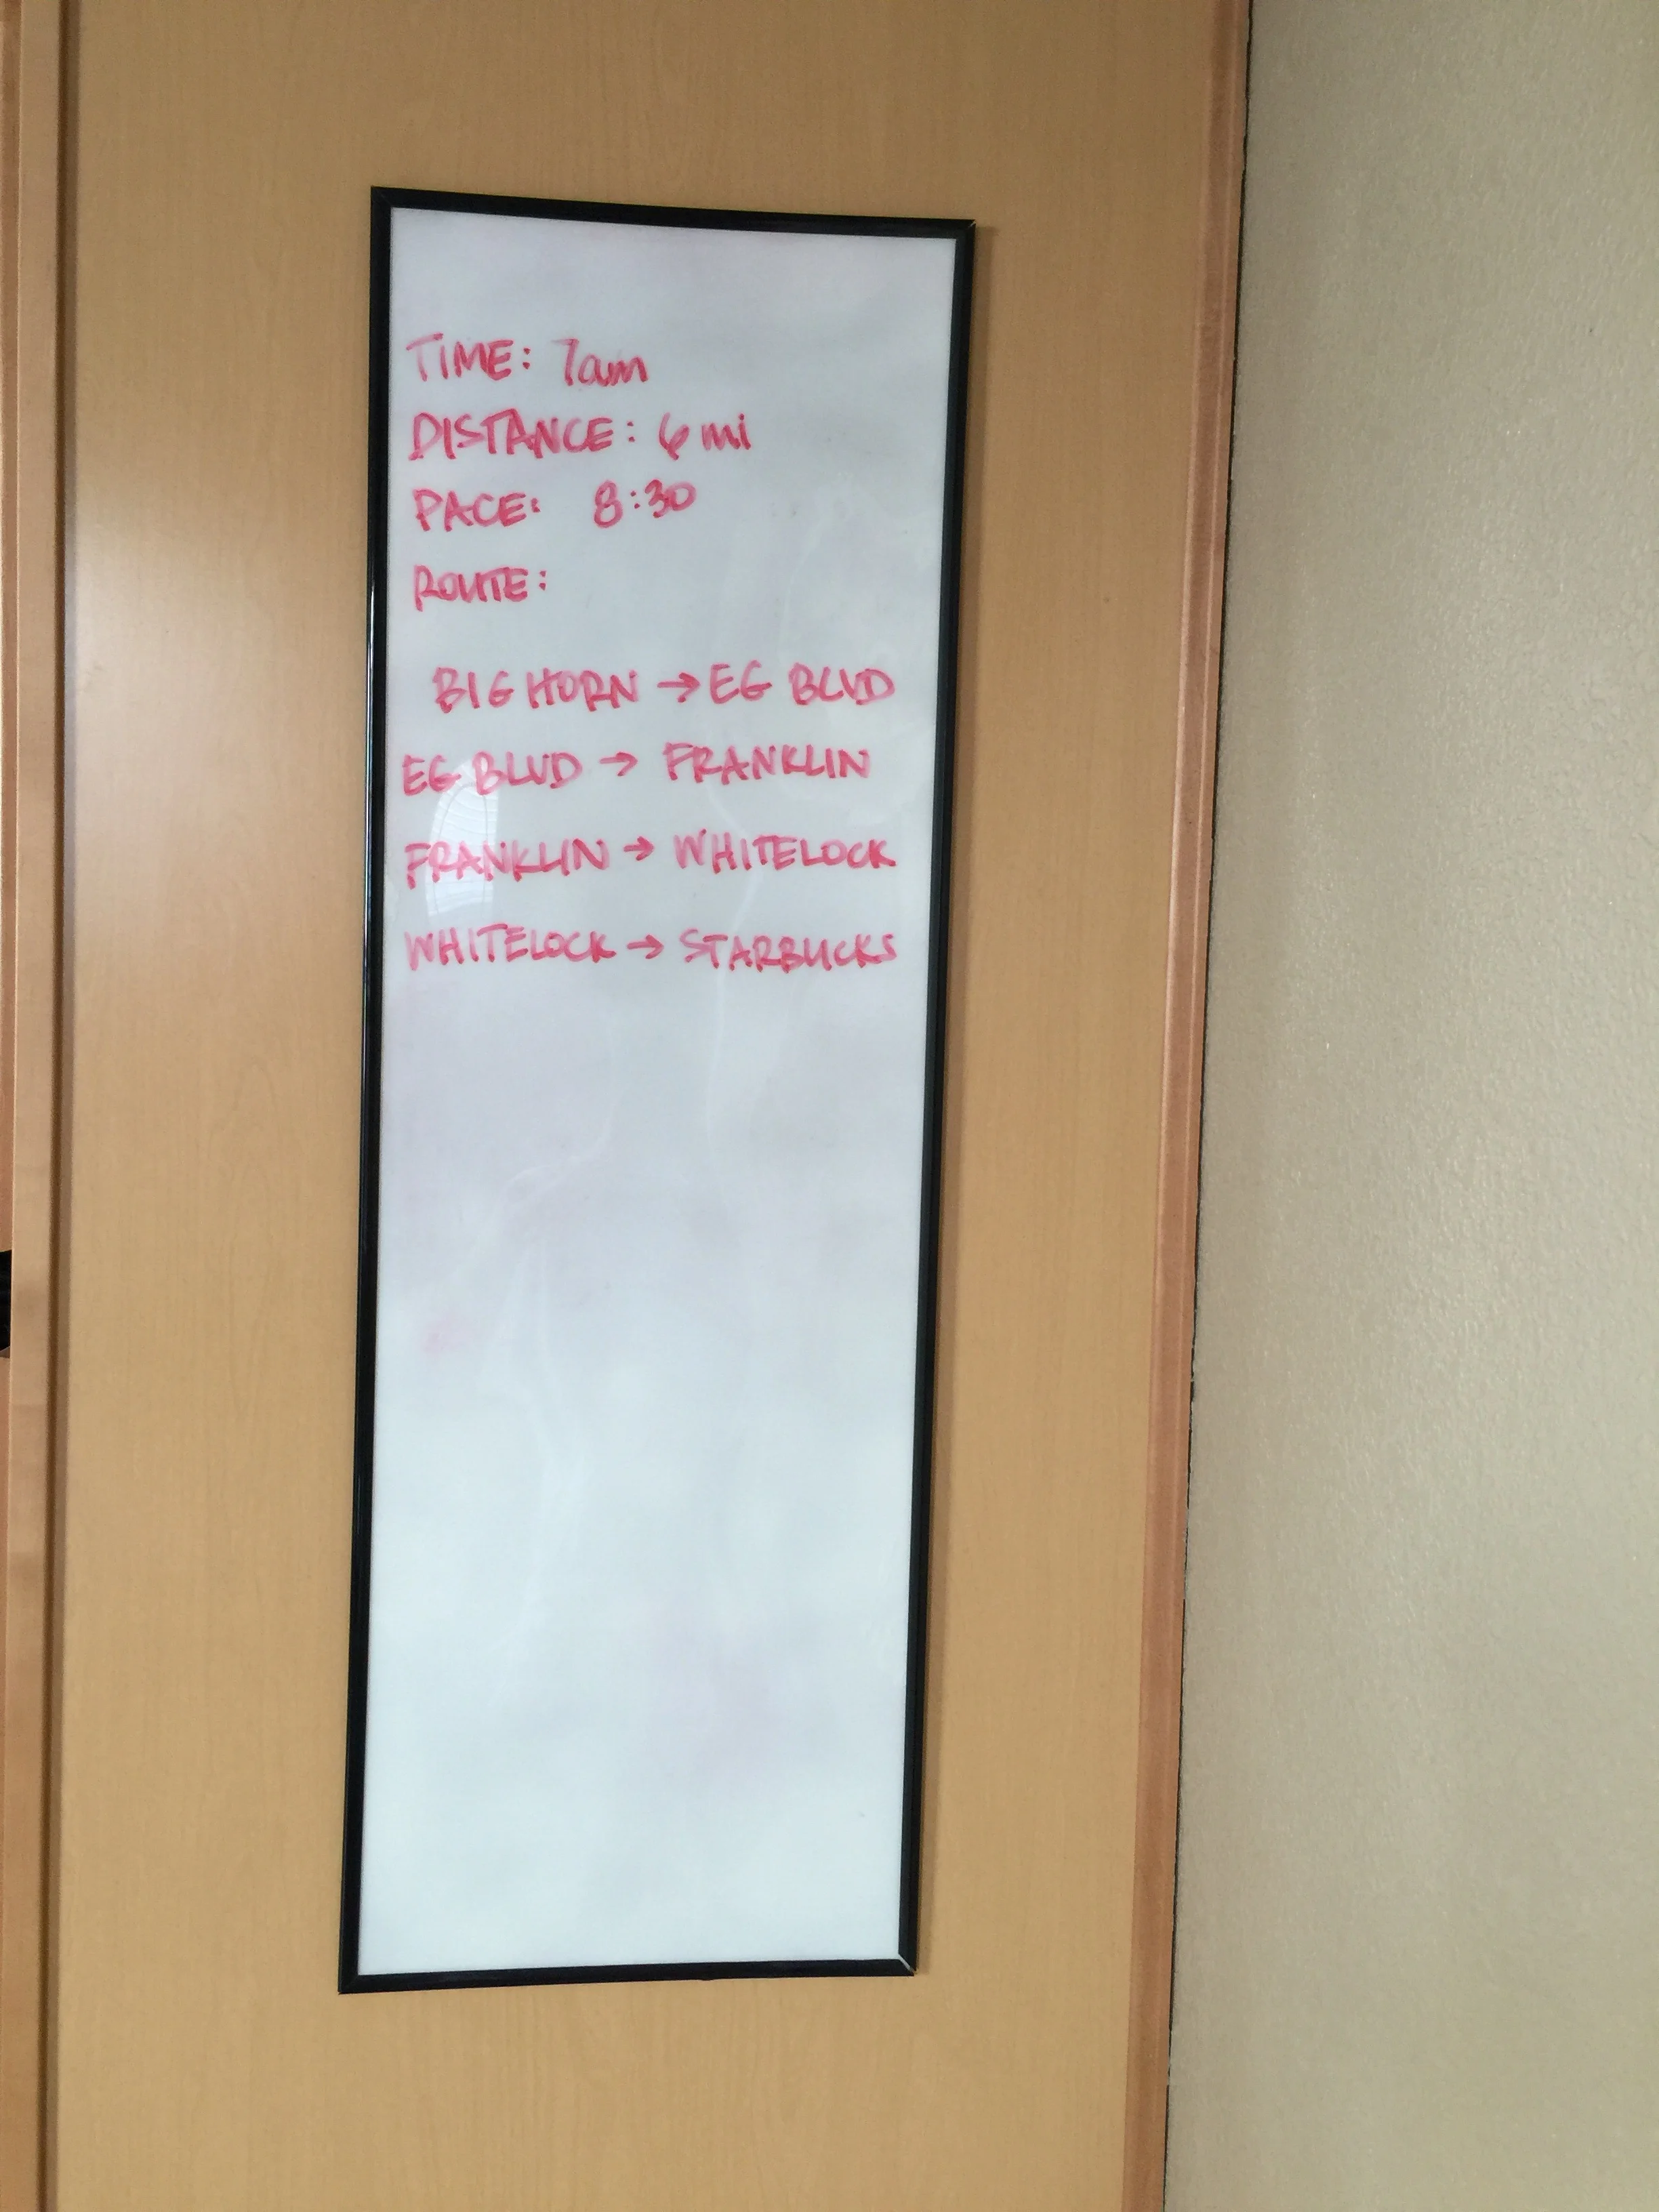 TIME: 7am
DISTANCE: 6 mi
PACE: 8:30
ROUTE:
BIG HORN → EG BLVD
EG BLVD → FRANKLIN
FRANKLIN → WHITELOCK
WHITELOCK → STARBUCKS